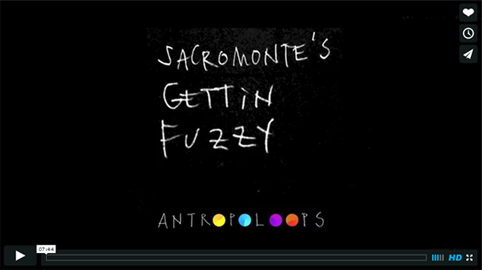 SACROMONTE'S
GETTIN
FUZZY
ANTROPOLOOPS
07:44
HD